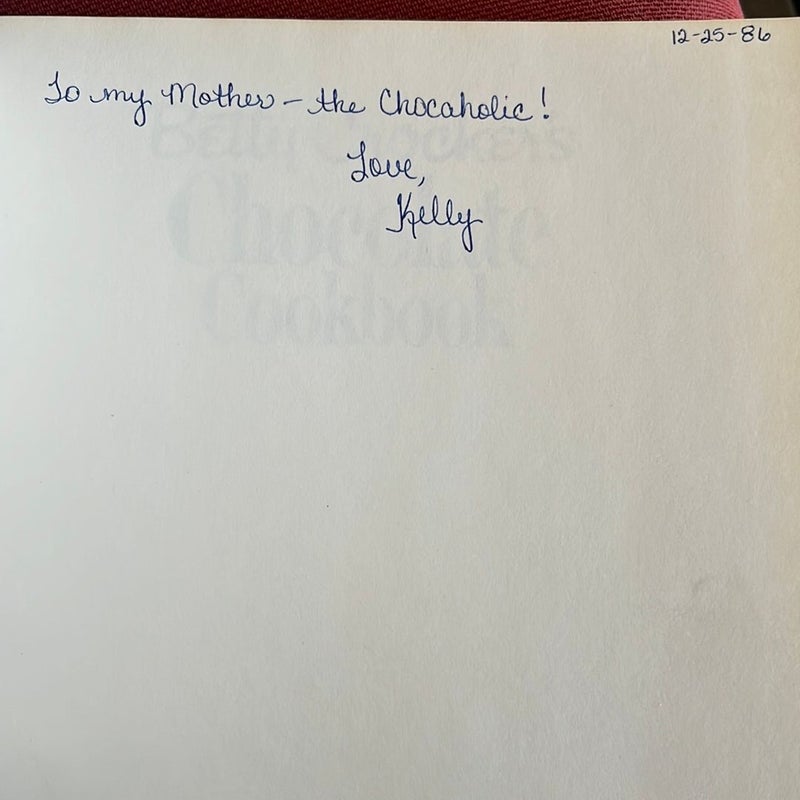 12-25-86
To my Mother - the Chocaholic!
Love,
Kelly
Betty Crocker's
Chocolate
Cookbook